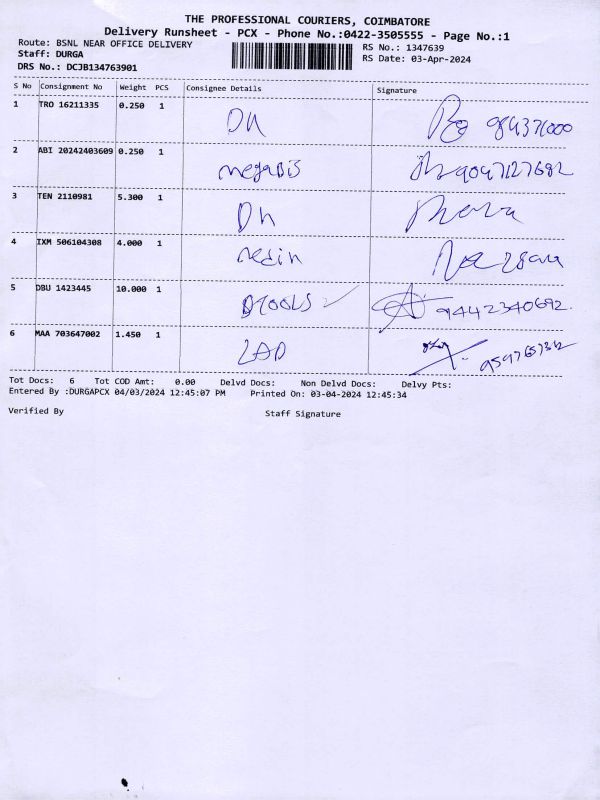 THE PROFESSIONAL COURIERS, COIMBATORE
Delivery Runsheet - PCX - Phone No.:0422-3505555 - Page No.:1
Route: BSNL NEAR OFFICE DELIVERY
RS No.: 1347639
Staff: DURGA
RS Date: 03-Apr-2024
DRS No.: DCJB134763901
S No Consignment No Weight PCS Consignee Details Signature
1 TRO 16211335 0.250 1
2 ABI 20242403609 0.250 1 megabis 9047127682
3 TEN 2110981 5.300 1
4 IXM 506104308 4.000 1
5 DBU 1423445 10.000 1 Btools 9442340692
6 MAA 703647002 1.450 1
Tot Docs: 6 Tot COD Amt: 0.00 Delvd Docs: Non Delvd Docs: Delvy Pts:
Entered By :DURGAPCX 04/03/2024 12:45:07 PM Printed On: 03-04-2024 12:45:34
Verified By Staff Signature